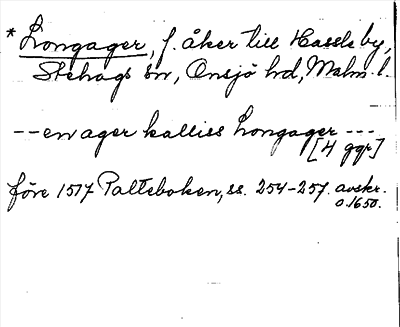 * Longager, f. åker till Hassle by,
Stehags sn, Onsjö hd, Malm. l.
-- en ager kalliss Longager ---
[4 ggr]
före 1517 Palteboken, ss. 254-257. avskr.
o. 1650.